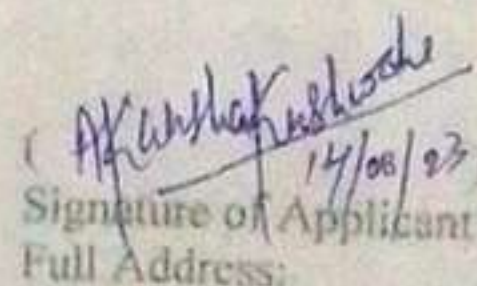 ( Akanksha Kushwaha
14/08/23
Signature of Applicant
Full Address: